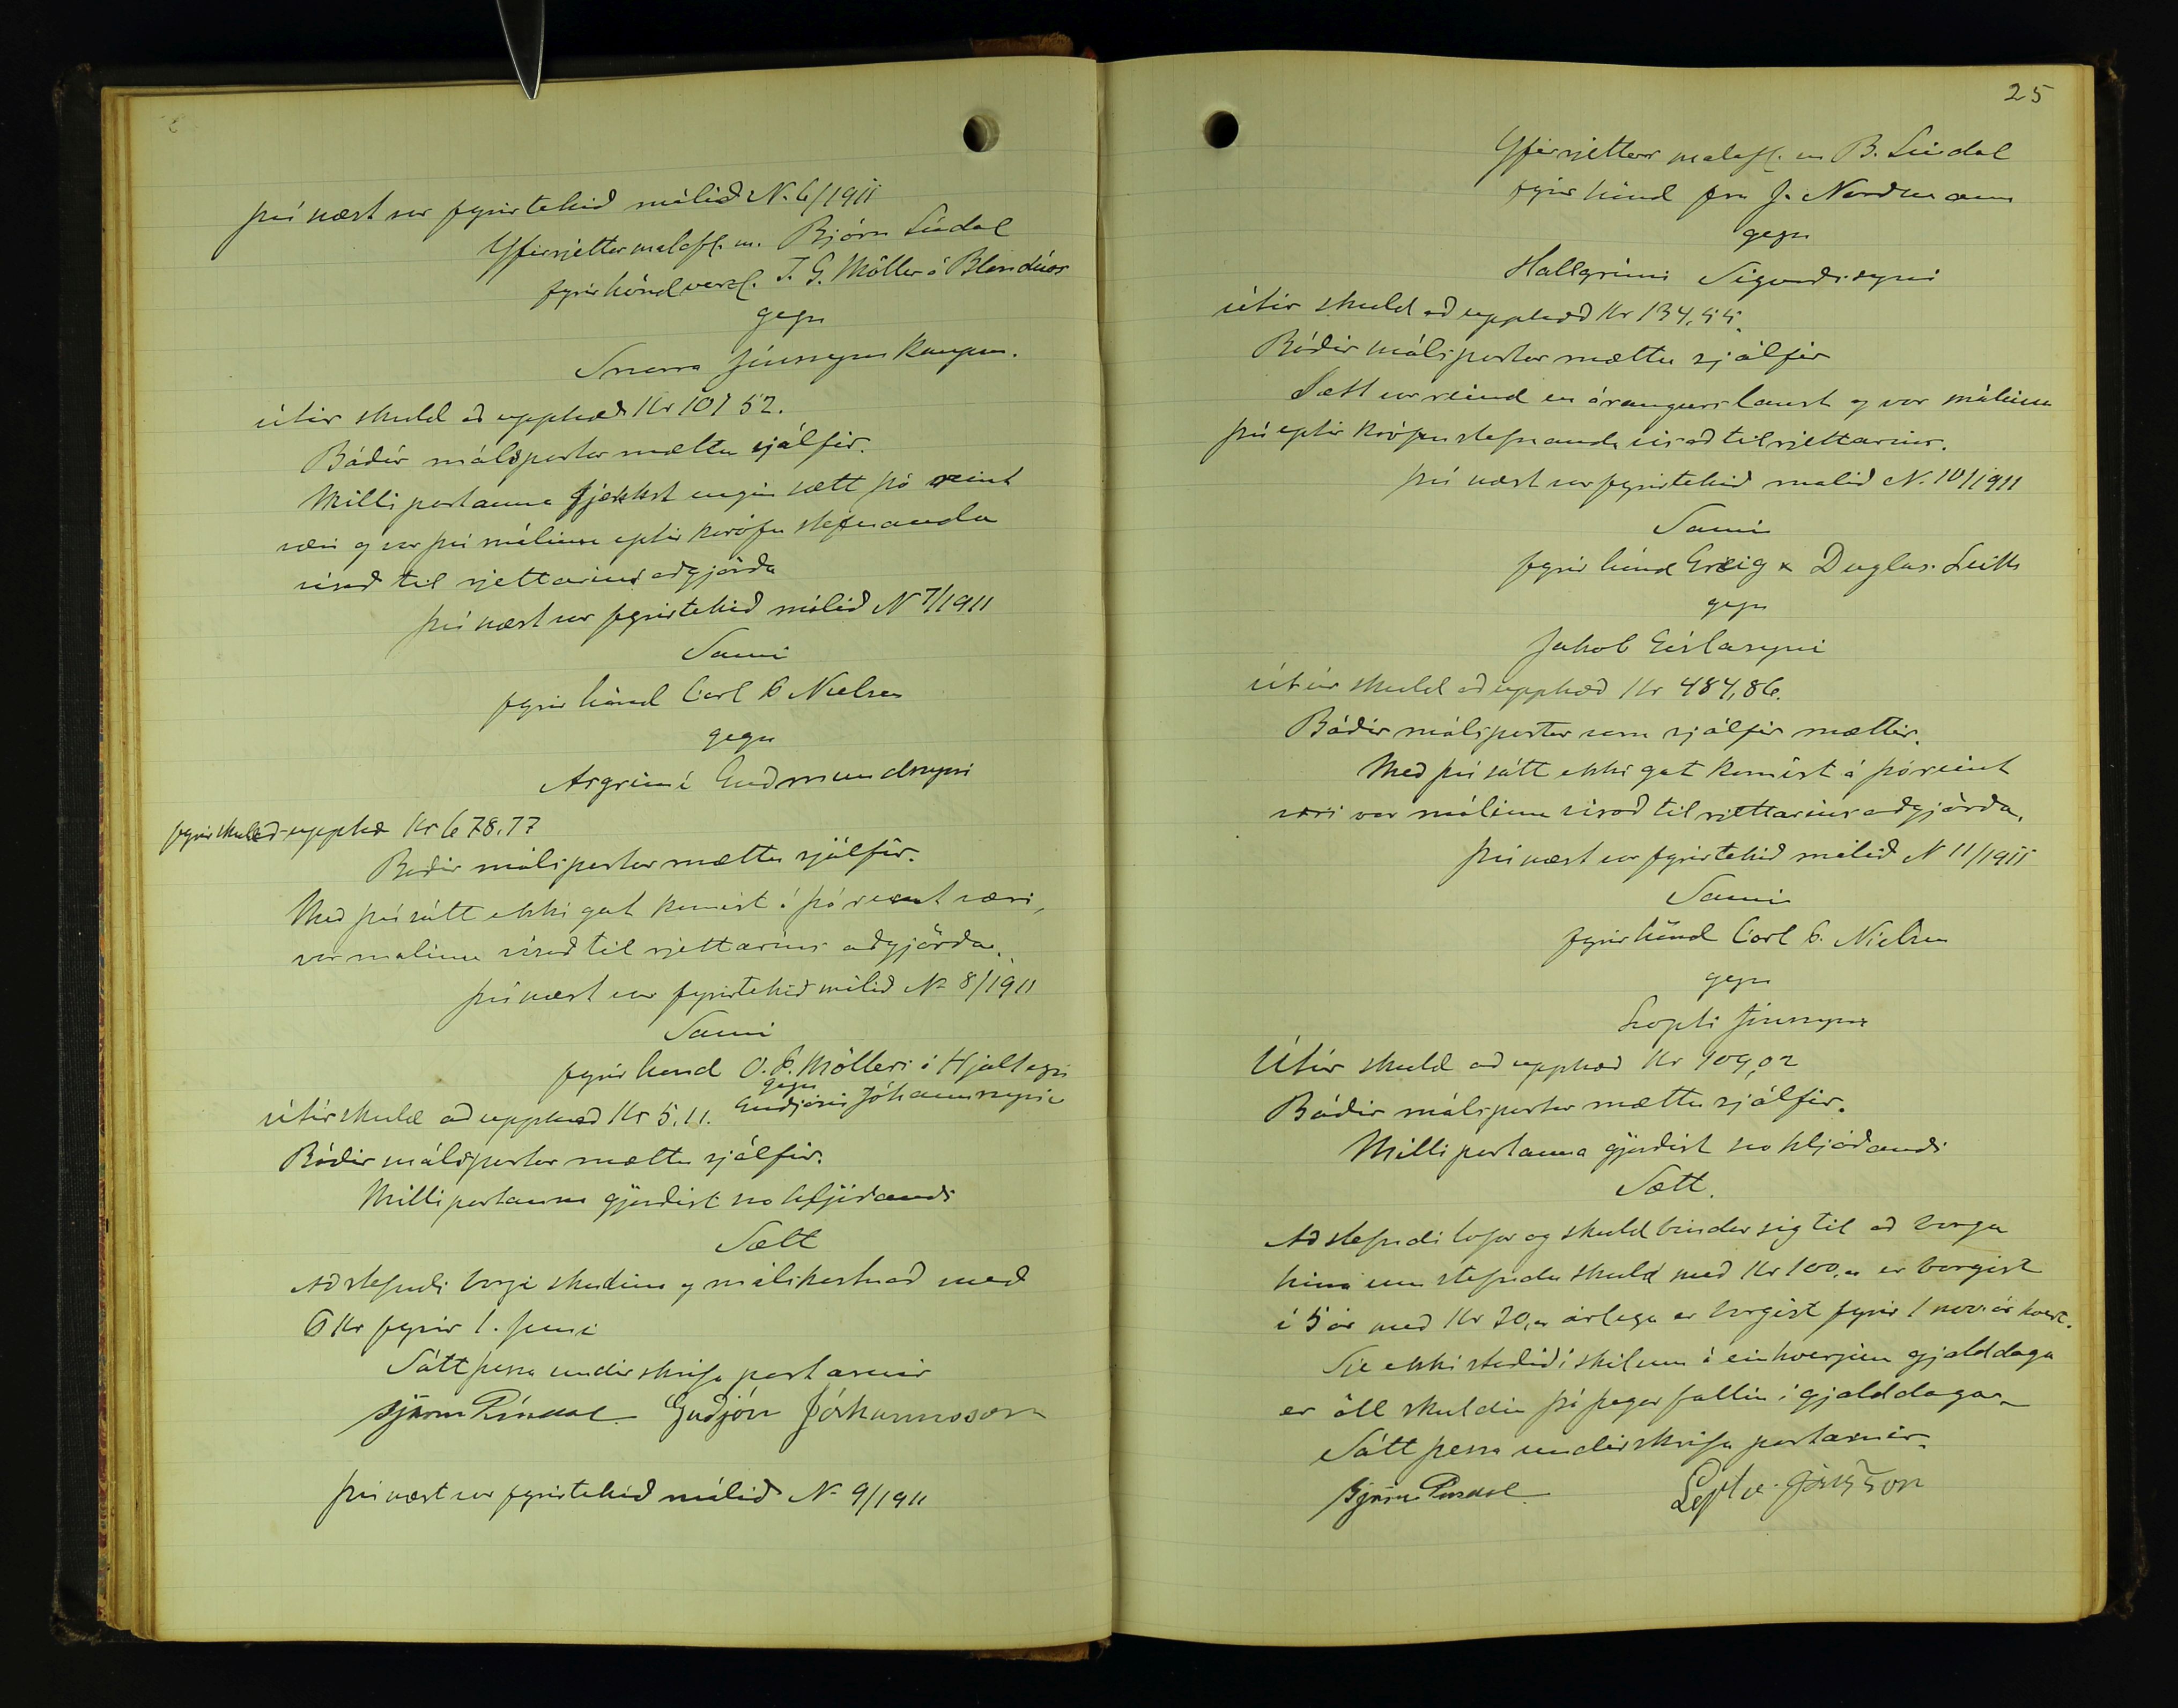 því næst var fyrirtekið málið N. 6/1911
Yfirrjettarmálafl.m. Björn Líndal
fyrir hönd verzl. J. G. Möller á Blönduós
gegn
Snorra Jónssyni kaupm.
útúr skuld að upphæð Kr 101 52.
Báðir málspartar mættu sjálfir.
Milli partanna fjekkst engin sætt þó reint
væri og var því málinu eptir kröfu stefnanda
vísað til rjettarins aðgjörða
því næst var fyrirtekið málið N 7/1911
Sami
fyrir hönd Carl C Nielsen
gegn
Asgrími Guðmundssyni
fyrir skuld að upphæ Kr 678.77
Báðir málspartar mættu sjálfir.
Með því sátt ekki gat komist á þó reint væri,
var malinu vísað til rjettarins aðgjörða.
því næst var fyrirtekið málið N 8/1911
Sami
fyrir hönd O. C. Möllers á Hjalteyri
gegn
útúr skuld að upphæð Kr 5.11. Guðjóni Jóhannssyni
Báðir málspartar mættu sjálfir.
Milli partanna gjörðist svo hljóðandi
Sætt
Að stefndi borgi skuldina og málskostnað með
6 Kr fyrir 1. Juni
Sátt þessa undirskrifa partarnir
Björn Líndal Guðjón Jóhannsson
því næst var fyrirtekið málið N 9/1911
25
Yfirrjettar malafl.m B. Líndal
fyrir hönd frú J. Nordmann
gegn
Hallgrími Sigurðssyni
útúr skuld að upphæð Kr 134,55.
Báðir málspartar mættu sjálfir
Sætt var reind en árangurslaust og var málinu
því eptir kröfu stefnanda vísað til rjettarins.
því næst var fyrirtekið malið N. 10/1911
Sami
fyrir hönd Greig & Duglas. Leith
gegn
Jakob Gíslasyni
útúr skuld að upphæð Kr 484,86.
Báðir málspartar voru sjálfir mættir.
Með því sátt ekki gat komist á þó reint
væri var málinu vísað til rjettarins aðgjörða.
því næst var fyrirtekið málið N 11/1911
Sami
fyrir hönd Carl C. Nielsen
gegn
Lopti Jónssyni
Útúr skuld að upphæð Kr 109,02
Báðir málspartar mættu sjálfir.
Milli partanna gjörðist svo hljóðandi
Sætt.
Að stefndi lofar og skuldbindur sig til að borga
hina um stefndu skuld með Kr 100,00 er borgist
í 5 ár með Kr 20,00 árlega er borgist fyrir 1 nov. ár hvert.
Sje ekki staðið í skilum á einhverjum gjalddaga
er öll skuldin þá þegar fallin í gjalddaga.
Sátt þessa undirskrifa partarnir.
Björn Líndal Loptur Jónsson